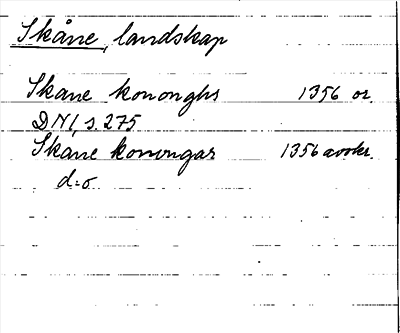 Skåne, landskap
Skane kononghs 1356 or.
DN1, s. 275
Skane konungar 1356 avskr.
d:o